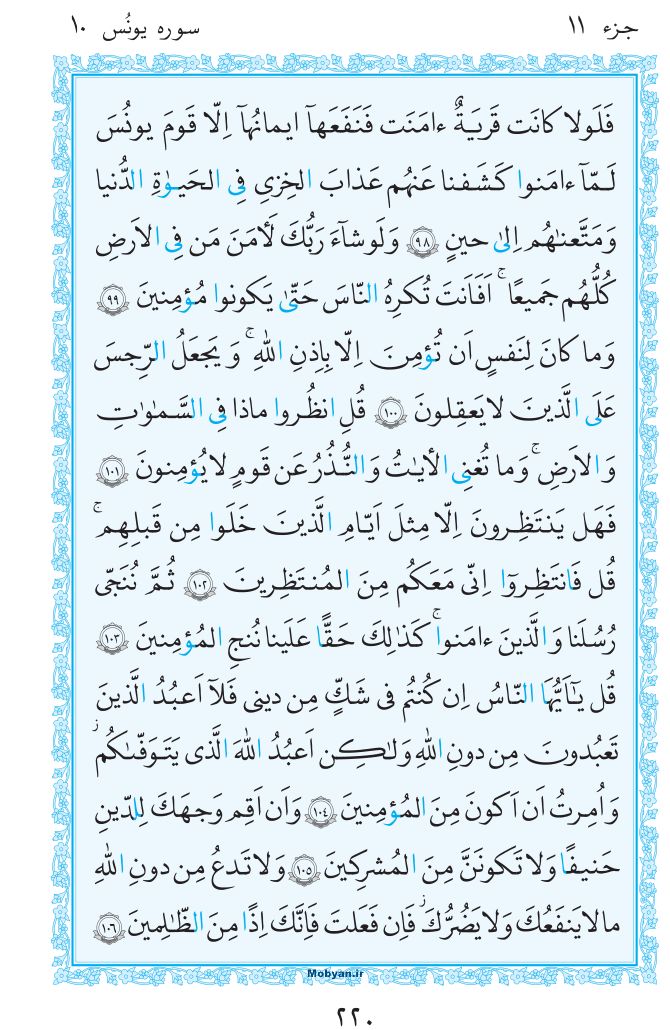 جزء ۱۱ سوره یونُس ۱۰
فَلَولا كانَت قَريَةٌ ءامَنَت فَنَفَعَهآ ايمانُهآ اِلّا قَومَ يونُسَ
لَـمّآ ءامَنوا كَشَفنا عَنهُم عَذابَ الخِزىِ فِى الحَيوٰةِ الدُّنيا
وَمَتَّعنٰهُم اِلىٰ حينٍ ۹۸ وَلَو شآءَ رَبُّكَ لَأمَنَ مَن فِى الاَرضِ
كُلُّهُم جَميعًا ۚ اَفَاَنتَ تُكرِهُ النّاسَ حَتّىٰ يَكونوا مُؤمِنينَ ۹۹
وَما كانَ لِنَفسٍ اَن تُؤمِنَ اِلّا بِاِذنِ اللّٰهِ ۚ وَيَجعَلُ الرِّجسَ
عَلَى الَّذينَ لايَعقِلونَ ۱۰۰ قُلِ انظُروا ماذا فِى السَّمٰوٰتِ
وَالاَرضِ ۚ وَما تُغنِى الأيٰتُ وَالنُّذُرُ عَن قَومٍ لايُؤمِنونَ ۱۰۱
فَهَل يَنتَظِرونَ اِلّا مِثلَ اَيّامِ الَّذينَ خَلَوا مِن قَبلِهِم ۚ
قُل فَانتَظِروٓا اِنّى مَعَكُم مِنَ المُنتَظِرينَ ۱۰۲ ثُمَّ نُنَجّى
رُسُلَنا وَالَّذينَ ءامَنوا ۚ كَذٰلِكَ حَقًّا عَلَينا نُنجِ المُؤمِنينَ ۱۰۳
قُل يٰٓاَيُّهَا النّاسُ اِن كُنتُم فى شَكٍّ مِن دينى فَلآ اَعبُدُ الَّذينَ
تَعبُدونَ مِن دونِ اللّٰهِ وَلٰكِن اَعبُدُ اللّٰهَ الَّذى يَتَوَفّىٰكُم ۖ
وَاُمِرتُ اَن اَكونَ مِنَ المُؤمِنينَ ۱۰۴ وَاَن اَقِم وَجهَكَ لِلدّينِ
حَنيفًا وَلاتَكونَنَّ مِنَ المُشرِكينَ ۱۰۵ وَلاتَدعُ مِن دونِ اللّٰهِ
مالايَنفَعُكَ وَلايَضُرُّكَ ۖ فَاِن فَعَلتَ فَاِنَّكَ اِذًا مِنَ الظّٰلِمينَ ۱۰۶
Mobyan.ir
۲۲۰